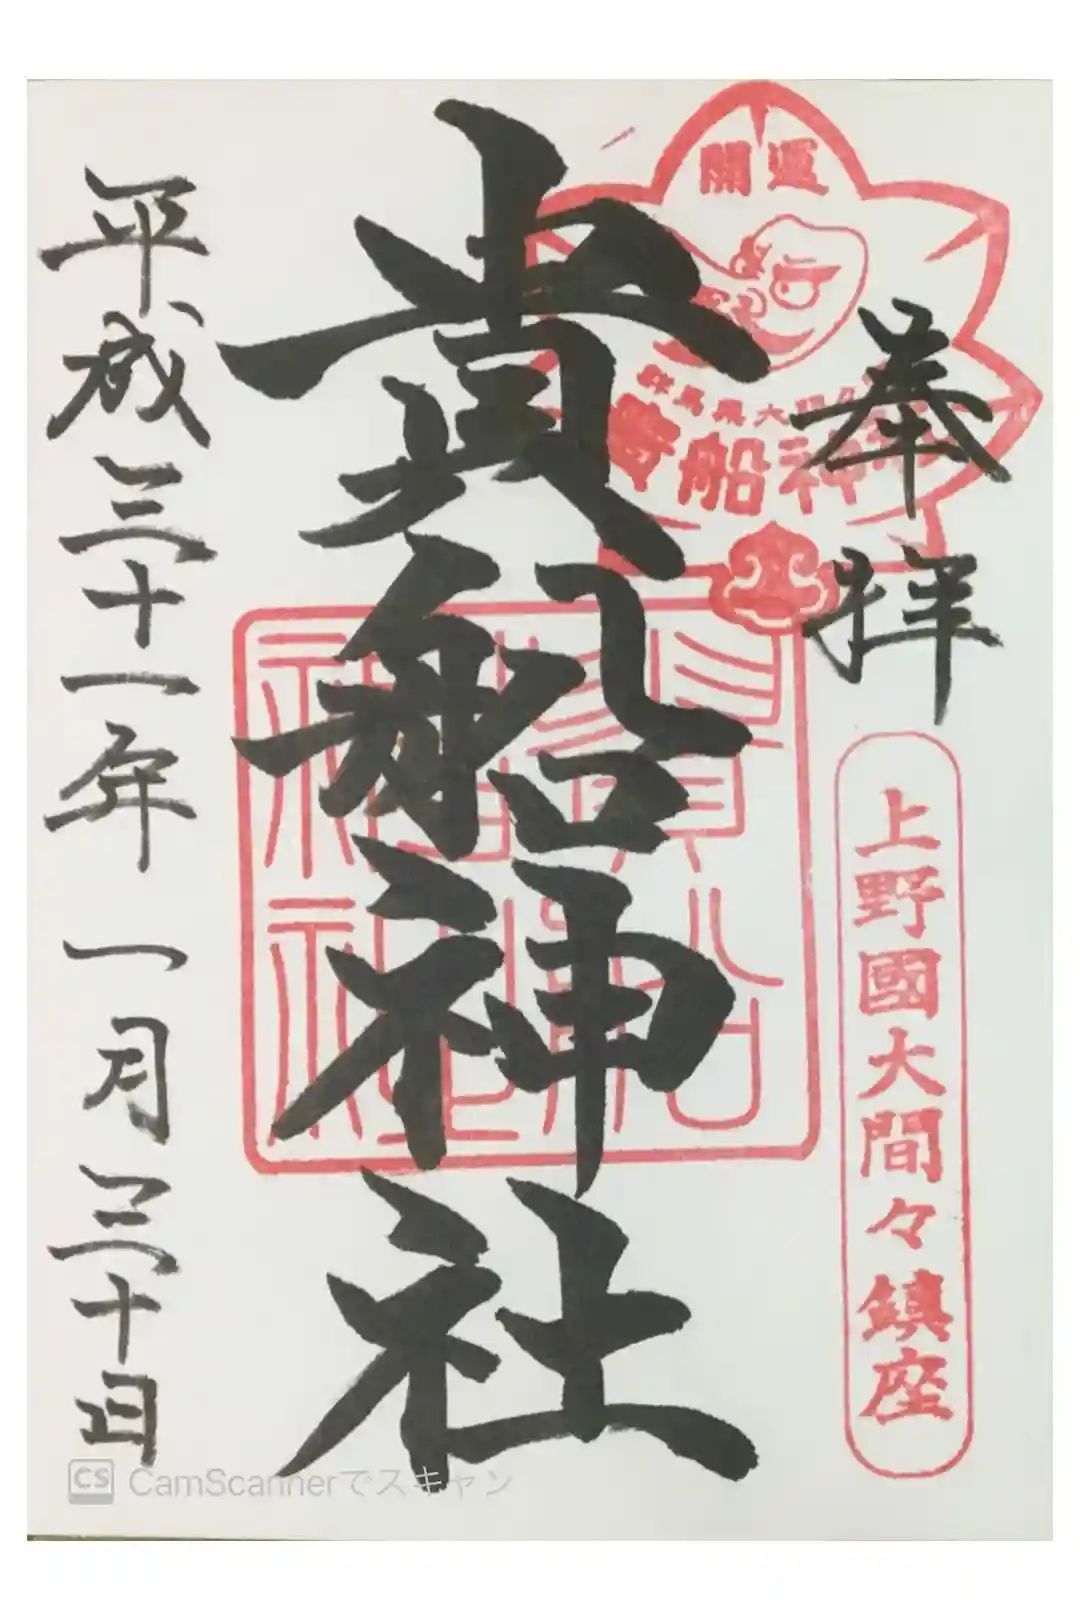 奉拝
開運
群馬県大間々
貴船神社
上野國大間々鎮座
貴船神社
貴船神社
平成三十一年一月三十日
CS CamScannerでスキャン